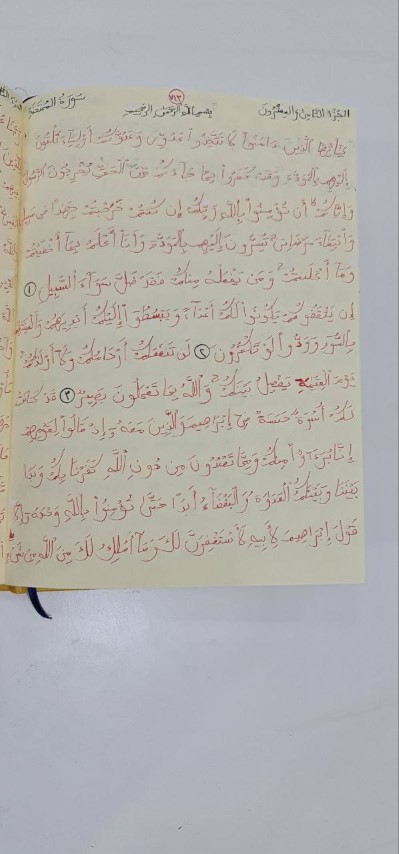 الجزء الثامن والعشرون
٧١٣
بسم الله الرحمن الرحيم
سورة الممتحنة
يَٰٓأَيُّهَا ٱلَّذِينَ ءَامَنُوا۟ لَا تَتَّخِذُوا۟ عَدُوِّى وَعَدُوَّكُمْ أَوْلِيَآءَ تُلْقُونَ
إِلَيْهِم بِٱلْمَوَدَّةِ وَقَدْ كَفَرُوا۟ بِمَا جَآءَكُم مِّنَ ٱلْحَقِّ يُخْرِجُونَ ٱلرَّسُولَ
وَإِيَّاكُمْ أَن تُؤْمِنُوا۟ بِٱللَّهِ رَبِّكُمْ إِن كُنتُمْ خَرَجْتُمْ جِهَٰدًا فِى سَبِيلِى
وَٱبْتِغَآءَ مَرْضَاتِى تُسِرُّونَ إِلَيْهِم بِٱلْمَوَدَّةِ وَأَنَا۠ أَعْلَمُ بِمَآ أَخْفَيْتُمْ
وَمَآ أَعْلَنتُمْ وَمَن يَفْعَلْهُ مِنكُمْ فَقَدْ ضَلَّ سَوَآءَ ٱلسَّبِيلِ ١
إِن يَثْقَفُوكُمْ يَكُونُوا۟ لَكُمْ أَعْدَآءً وَيَبْسُطُوٓا۟ إِلَيْكُمْ أَيْدِيَهُمْ وَأَلْسِنَتَهُم
بِٱلسُّوٓءِ وَوَدُّوا۟ لَوْ تَكْفُرُونَ ٢ لَن تَنفَعَكُمْ أَرْحَامُكُمْ وَلَآ أَوْلَٰدُكُمْ
يَوْمَ ٱلْقِيَٰمَةِ يَفْصِلُ بَيْنَكُمْ وَٱللَّهُ بِمَا تَعْمَلُونَ بَصِيرٌ ٣ قَدْ كَانَتْ
لَكُمْ أُسْوَةٌ حَسَنَةٌ فِىٓ إِبْرَٰهِيمَ وَٱلَّذِينَ مَعَهُۥٓ إِذْ قَالُوا۟ لِقَوْمِهِمْ
إِنَّا بُرَءَٰٓؤُا۟ مِنكُمْ وَمِمَّا تَعْبُدُونَ مِن دُونِ ٱللَّهِ كَفَرْنَا بِكُمْ وَبَدَا
بَيْنَنَا وَبَيْنَكُمُ ٱلْعَدَٰوَةُ وَٱلْبَغْضَآءُ أَبَدًا حَتَّىٰ تُؤْمِنُوا۟ بِٱللَّهِ وَحْدَهُۥٓ إِلَّا
قَوْلَ إِبْرَٰهِيمَ لِأَبِيهِ لَأَسْتَغْفِرَنَّ لَكَ وَمَآ أَمْلِكُ لَكَ مِنَ ٱللَّهِ مِن شَىْءٍ